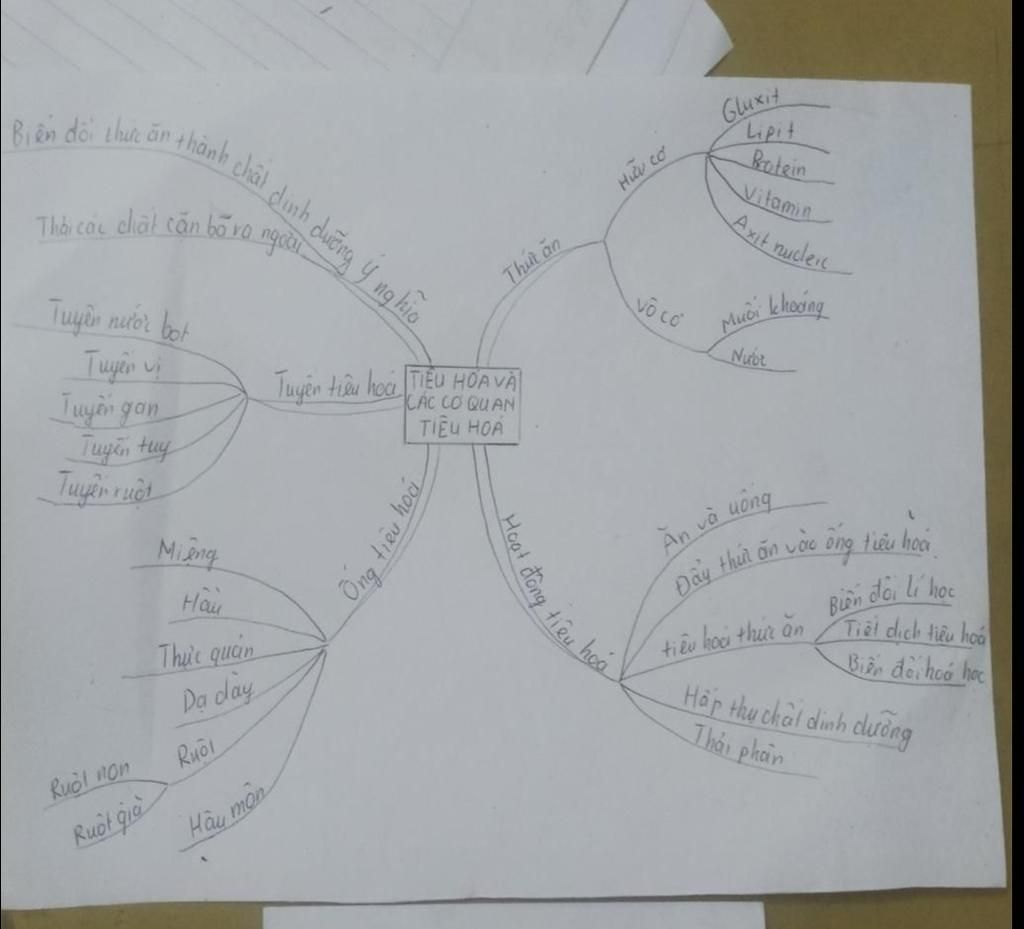 TIÊU HÓA VÀ
CÁC CƠ QUAN
TIÊU HOÁ
Ý nghĩa
Biến đổi thức ăn thành chất dinh dưỡng
Thải các chất cặn bã ra ngoài
Tuyến tiêu hoá
Tuyến nước bọt
Tuyến vị
Tuyến gan
Tuyến tuỵ
Tuyến ruột
Ống tiêu hoá
Miệng
Hầu
Thực quản
Dạ dày
Ruột
Ruột non
Ruột già
Hậu môn
Thức ăn
Hữu cơ
Gluxit
Lipit
Protein
Vitamin
Axit nucleic
Vô cơ
Muối khoáng
Nước
Hoạt động tiêu hoá
Ăn và uống
Đẩy thức ăn vào ống tiêu hoá
tiêu hoá thức ăn
Biến đổi lí học
Tiết dịch tiêu hoá
Biến đổi hoá học
Hấp thụ chất dinh dưỡng
Thải phân